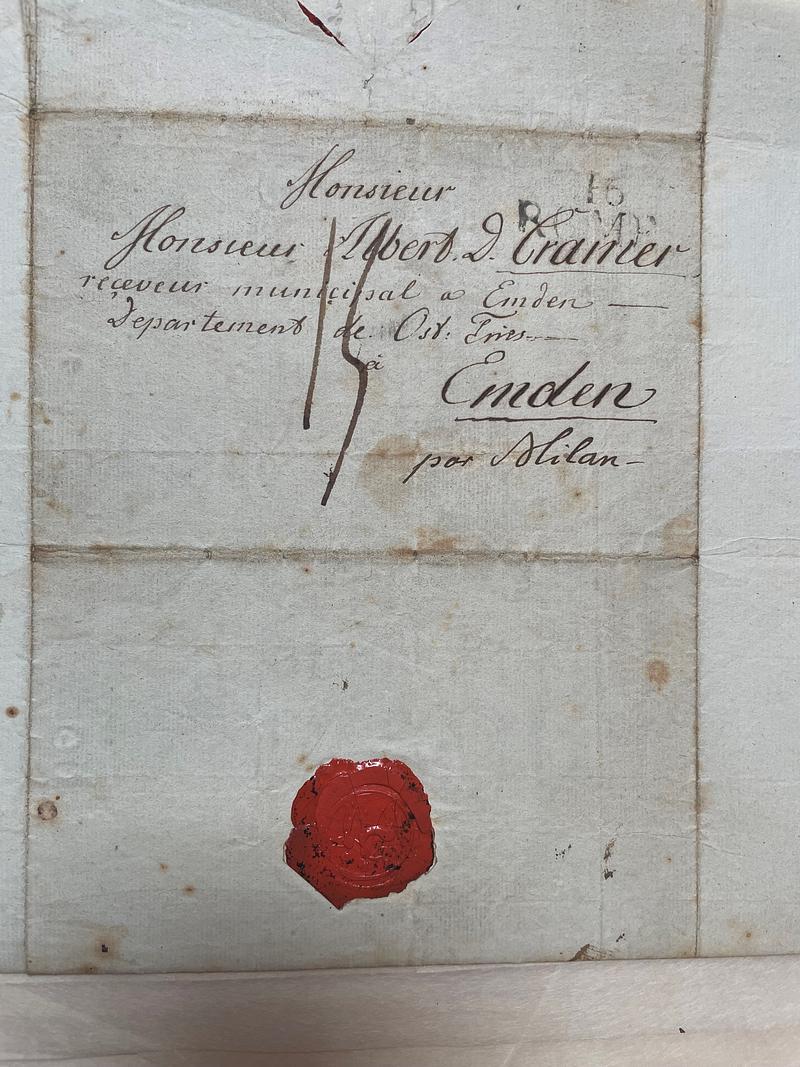 Monsieur
15
Monsieur Albert. D. Cramer
receveur municipal a Emden —
Departement de. Ost: Fries—
à
Emden
par Milan—
15